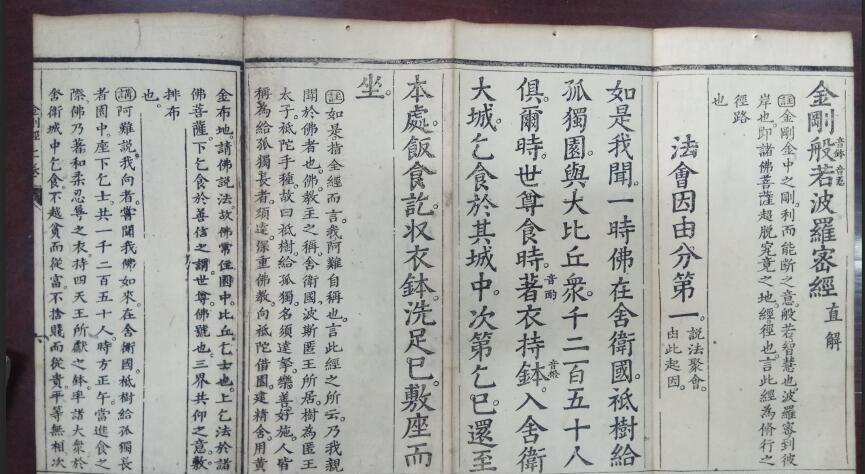 金剛般若波羅密經 直解
音鉢 音惹
註金剛金中之剛利而能斷之意般若智慧也波羅密到彼
岸也即諸佛菩薩超脫究竟之地經徑也言此經為修行之
徑路
也
法會因由分第一 說法聚會
由此起因
如是我聞一時佛在舍衛國祇樹給
孤獨園與大比丘衆千二百五十人
俱爾時世尊食時著衣持鉢入舍衛
音酌
大城乞食於其城中次第乞已還至
本處飯食訖收衣鉢洗足已敷座而
坐
註如是指全經而言我阿難自稱也言此經之所云乃我親
聞於佛者也佛教主之稱舍衛國波斯匿王所居樹為匿王
太子祗陀手種故曰祗樹給孤獨名須達拏樂善好施人皆
稱為給孤獨長者須達深重佛教向祗陀借園建精舍用黃
金布地請佛説法故佛常住園中比丘乞士也上乞法於諸
佛菩薩下乞食於善信之謂世尊佛號也三界共仰之意敷
排布
也
講阿難說我向者嘗聞我佛如來在舍衛國祗樹給孤獨長
者園中座下乞士共一千二百五十人時方正午當進食之
際佛乃著和柔忍辱之衣持四天王所獻之鉢率諸大衆於
舍衛城中乞食不越貧而從富不捨賤而從貴平等無相次
金剛經上卷
六